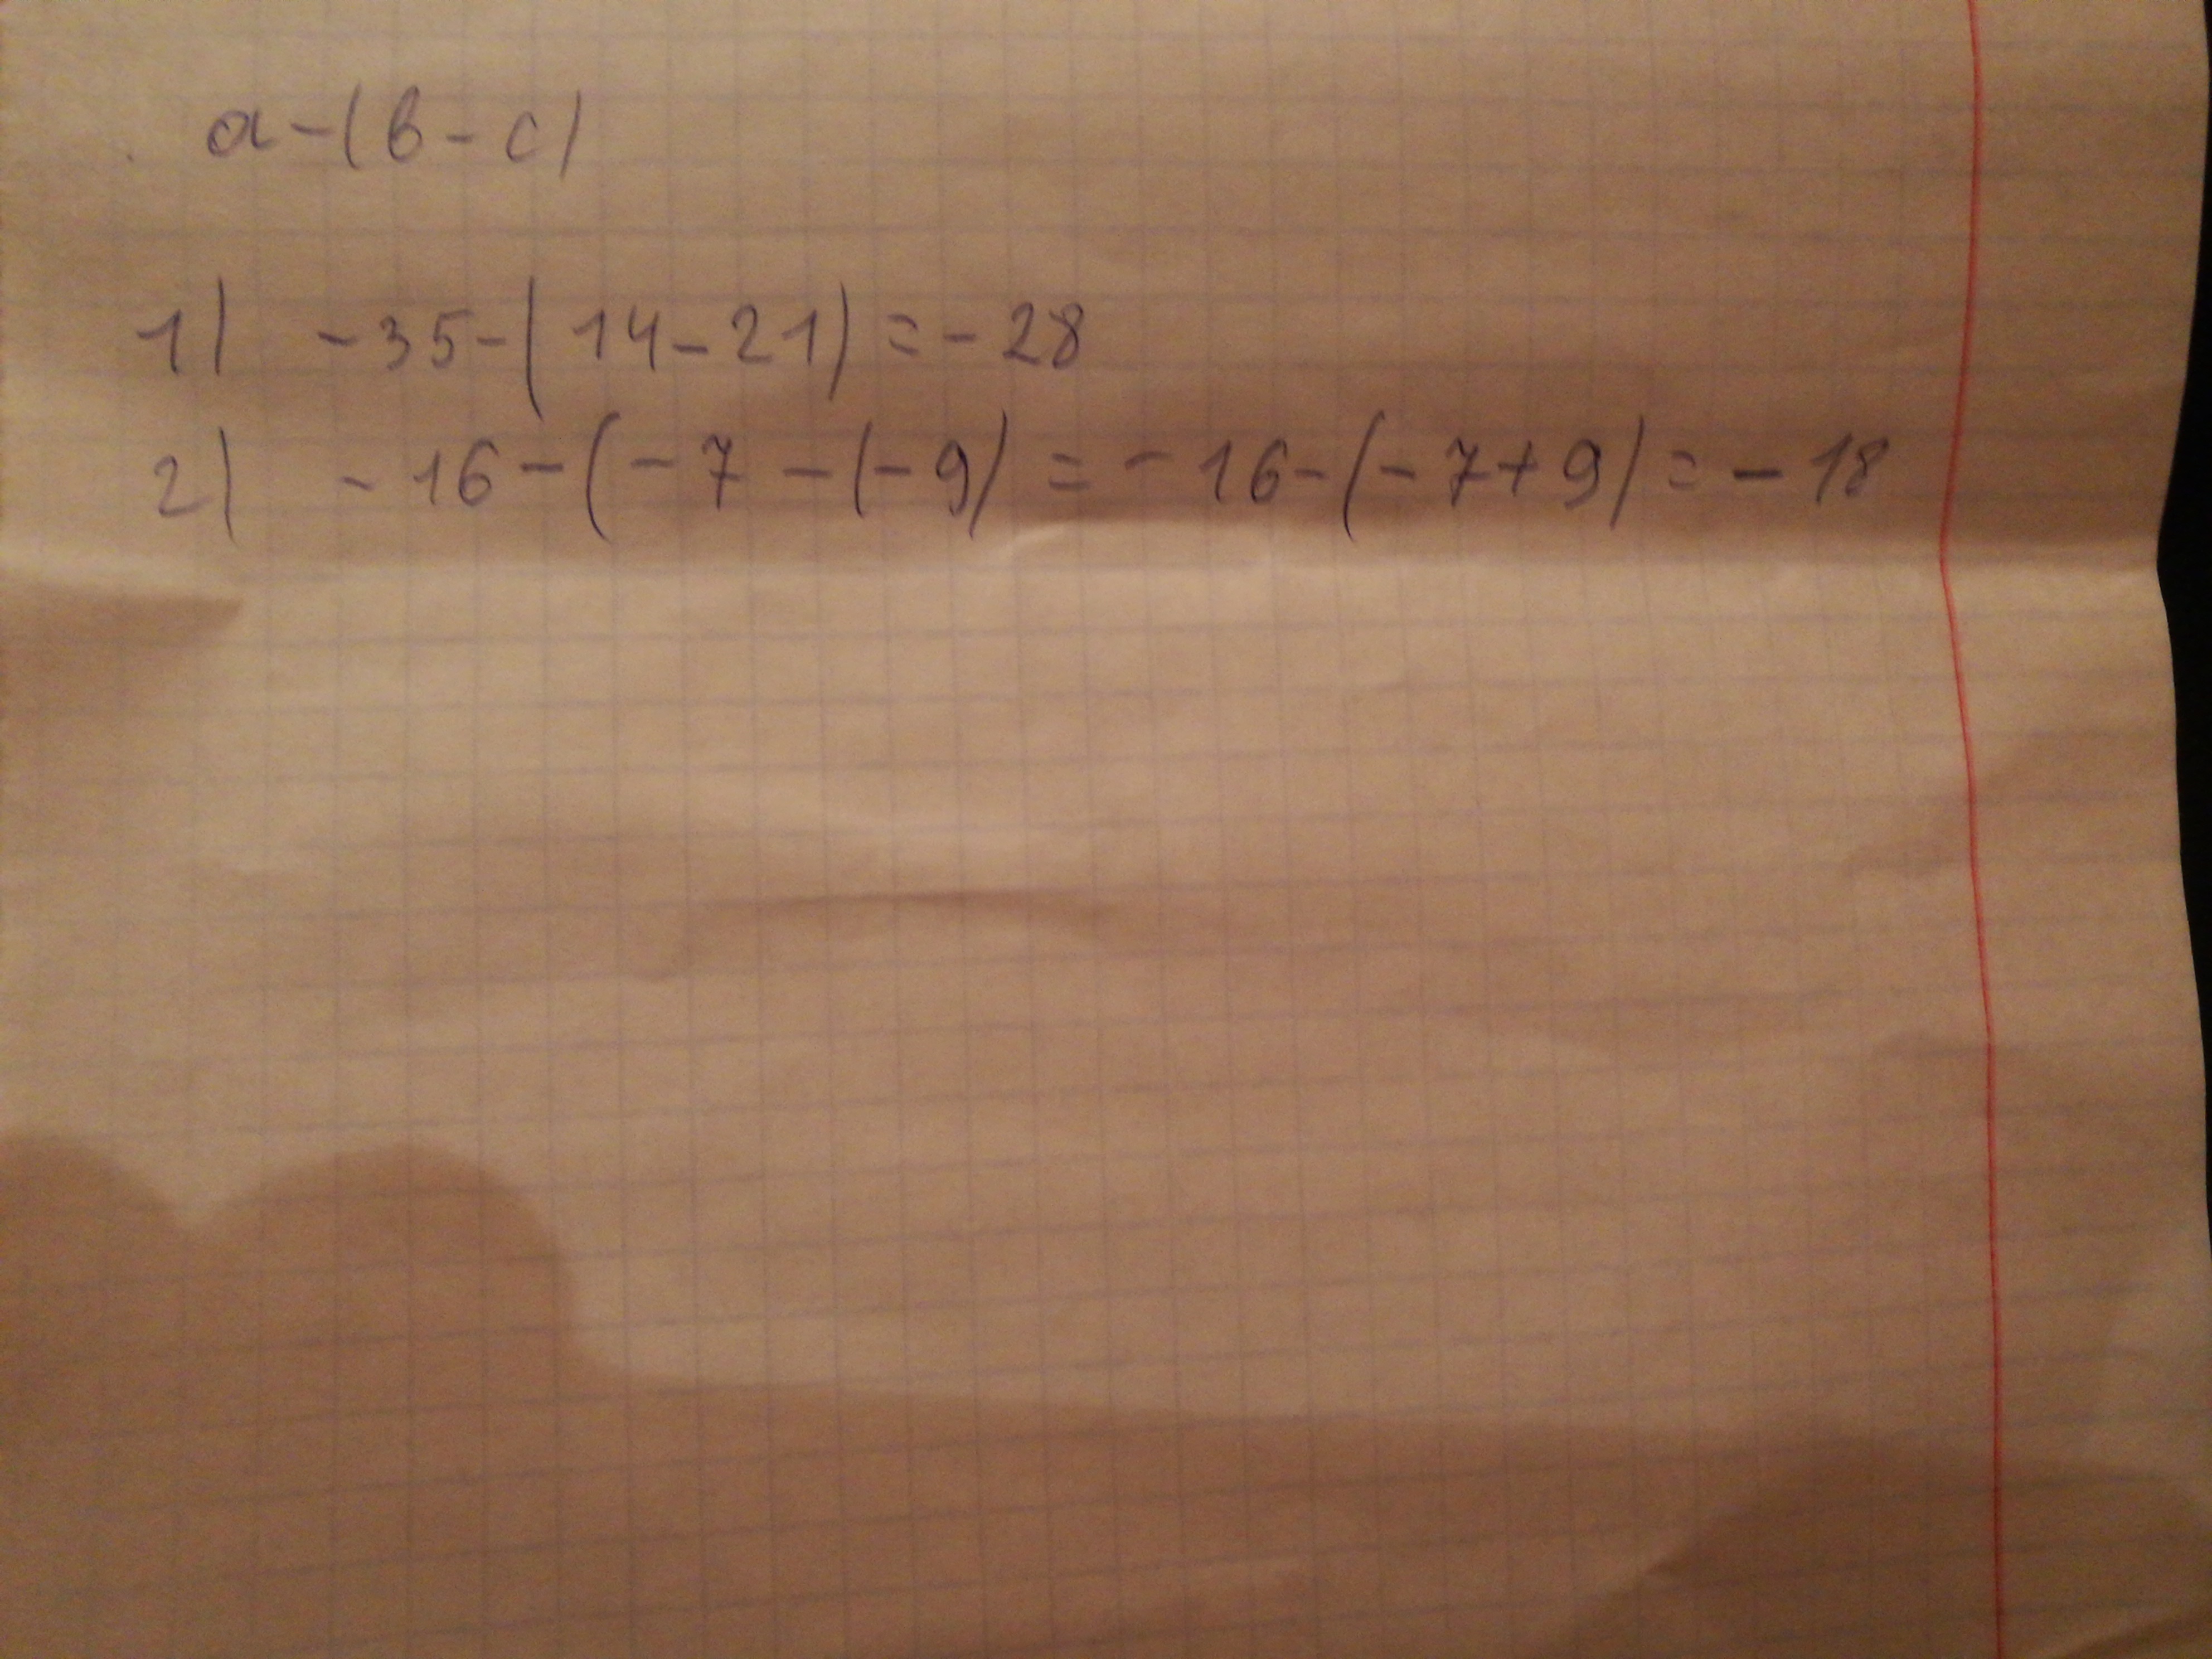 a-(b-c)
1) -35-(14-21)=-28
2) -16-(-7-(-9)=-16-(-7+9)=-18